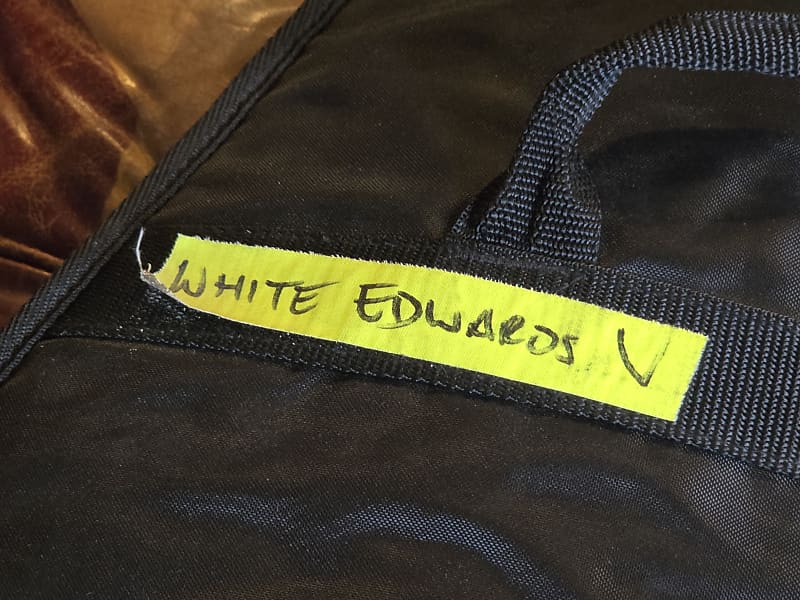 WHITE EDWARDS V